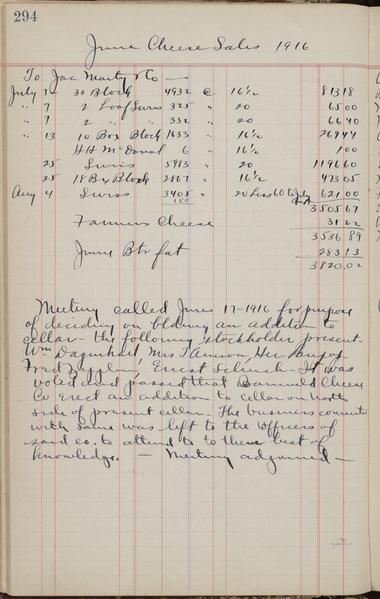 294
June Cheese Sales 1916
To Jac. Marty & Co —
July 7 - 30 Block 4932 @ 16½ 813 18
" 7 2 Loaf Swiss 325 " 20 65 00
" 7 2 " " 332 " 20 66 40
" 13 10 Box Block 1633 " 16½ 269 44
H H McDonal 6 " 16½ 1 00
25 Swiss 5983 " 20 1196 60
25 18 Box Block 2867 " 16½ 473 05
Aug 4 Swiss 3405 " 20 Less 60 621 00
3505 67
Farmers Cheese 31 22
3536 89
June Btr fat 283 13
3820.02
Meeting called June 17-1916 for purpose
of deciding on blding an addition to
cellar - the following stockholder present.
Wm Dagenhart, Mrs J Ammon, Her
Fred Ernest It was
voted and passed that Cheese
Co Erect an addition to cellar on North
side of present cellar - The business connected
with same was left to the officers of
said co. to attend to to their best of
knowledge. — Meeting adjourned —